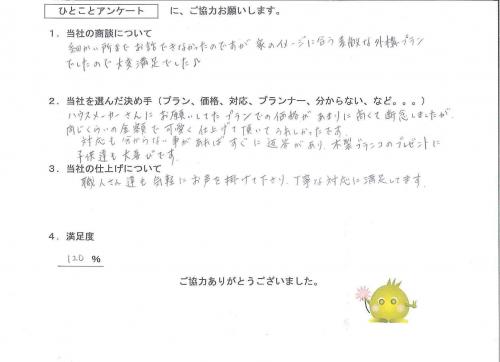 ひとことアンケート に、ご協力お願いします。
1．当社の商談について
細かい所までお話できなかったのですが 家のイメージに合う素敵な外構プラン
でしたので大変満足でした♪
2．当社を選んだ決め手（プラン、価格、対応、プランナー、分からない、など。。。）
ハウスメーカーさんにお願いしてたプランでの価格があまりに高くて断念しましたが、
同じくらいの金額で可愛く仕上げて頂いてうれしかったです。
対応も分からない事があればすぐに返答があり、木製ブランコのプレゼントに
子供達も大喜びです。
3．当社の仕上げについて
職人さん達も気軽にお声を掛けて下さり、丁寧な対応に満足してます。
4．満足度
120 ％
ご協力ありがとうございました。